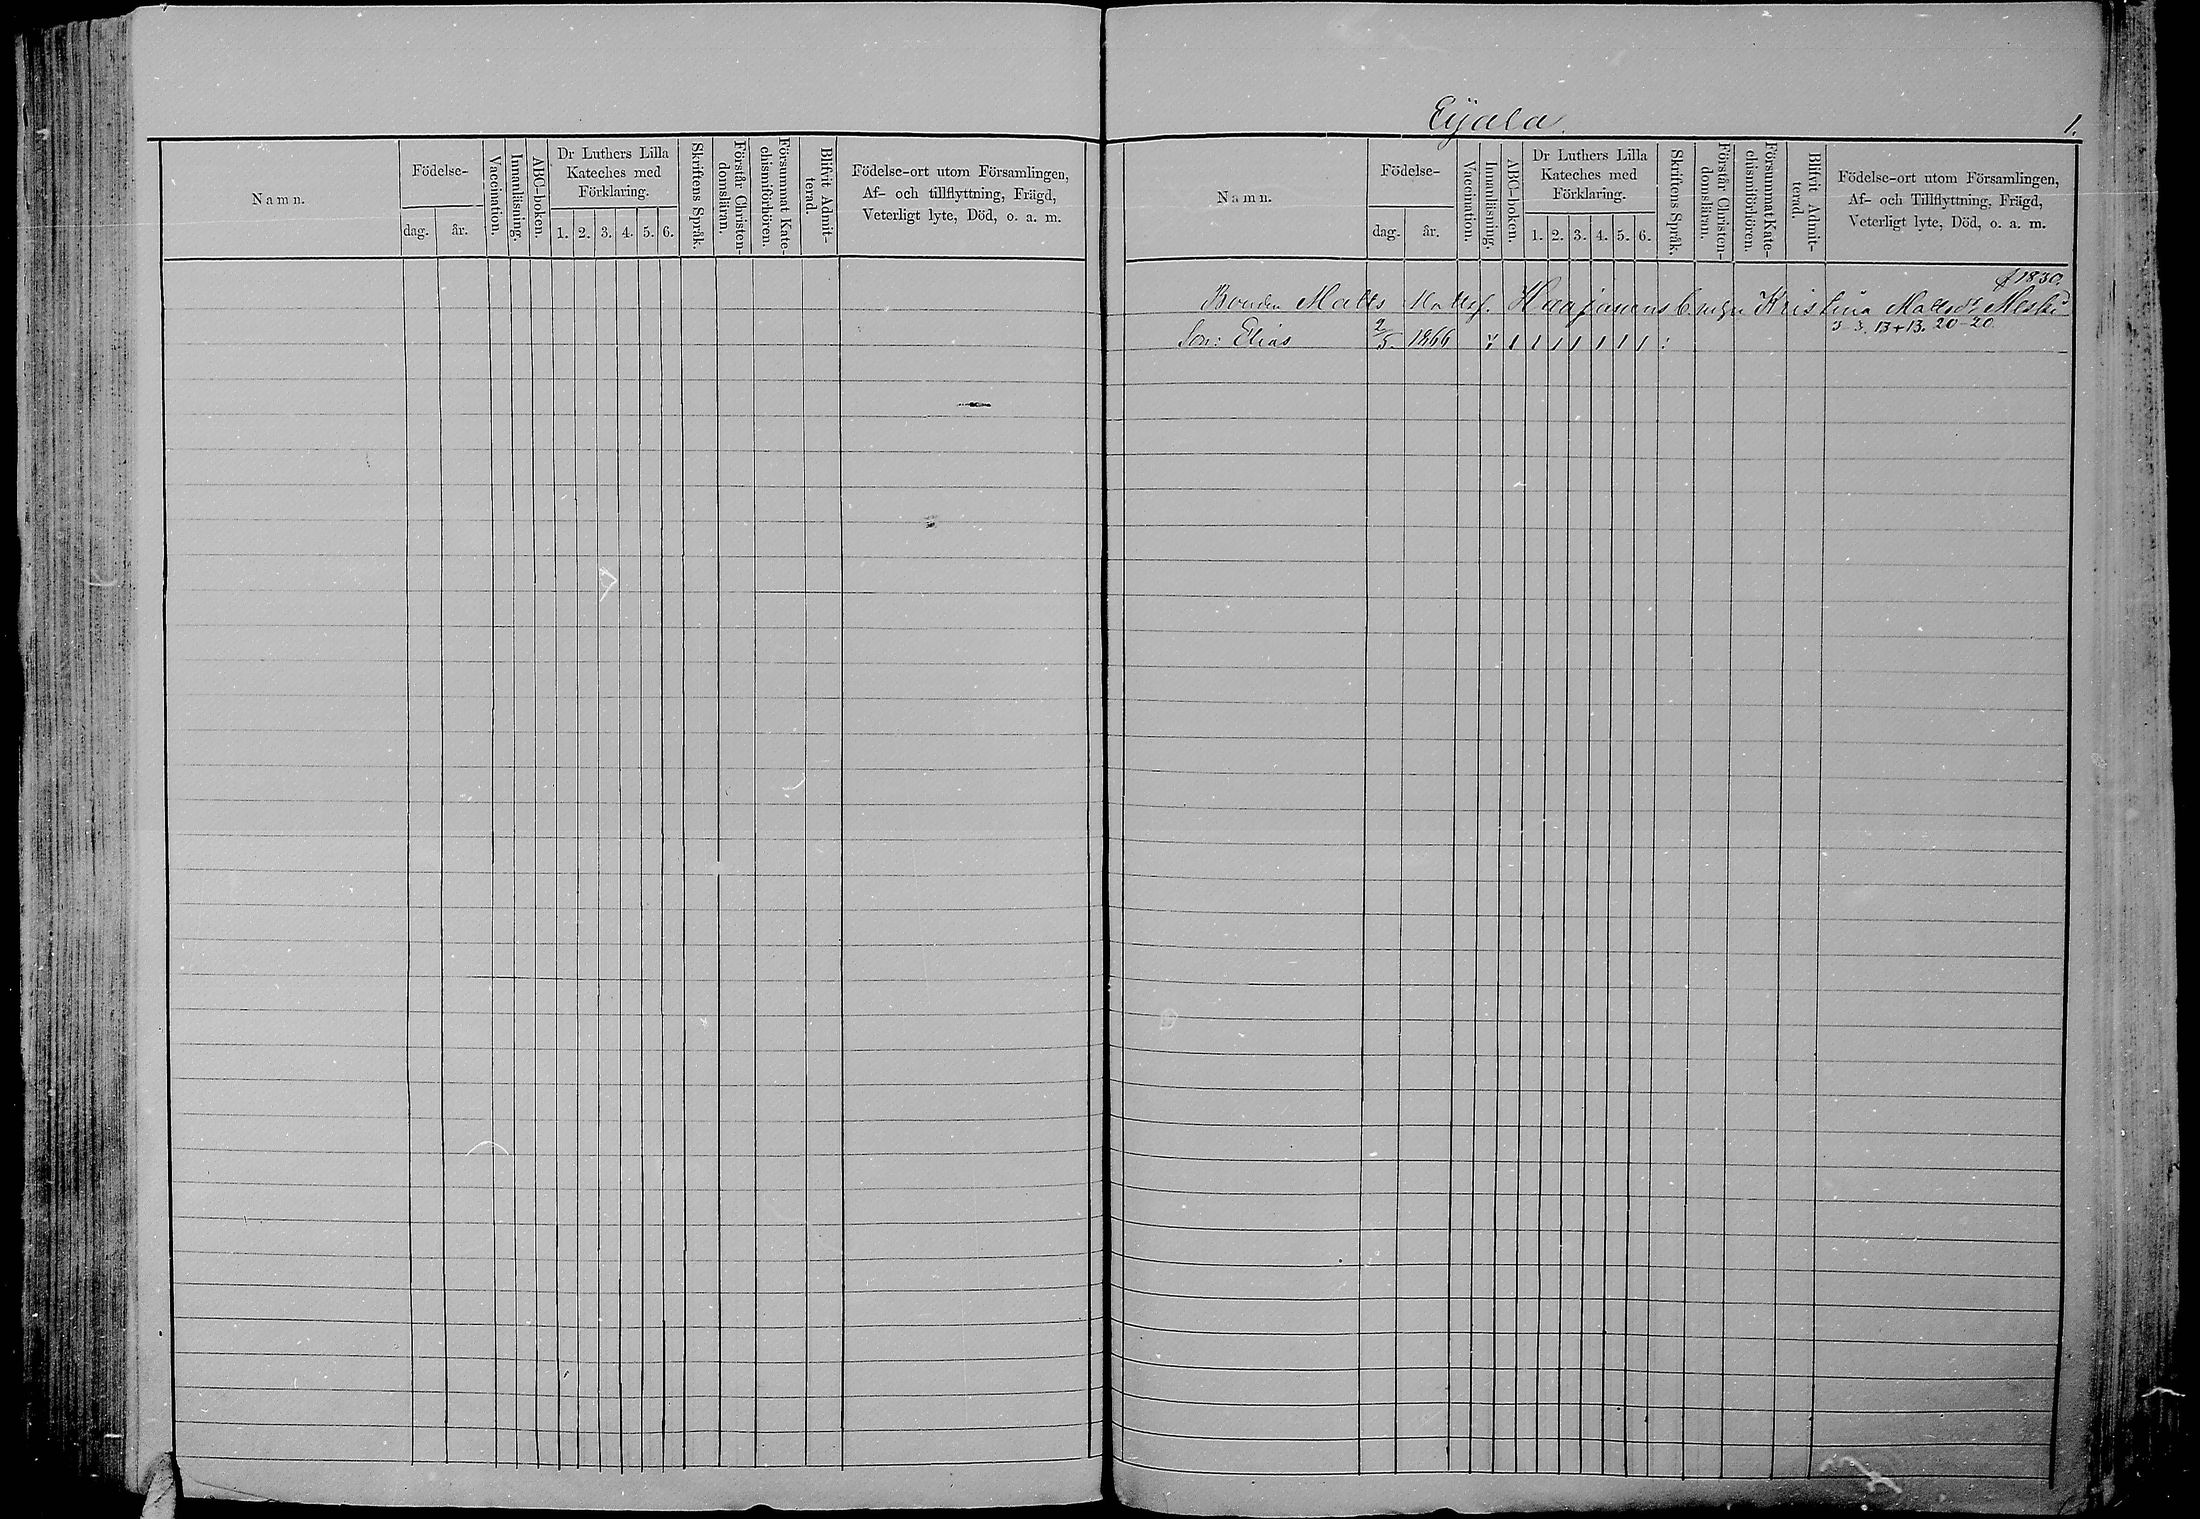 Namn.
Födelse-
dag. år.
Vaccination.
Innanläsning.
ABC-boken.
Dr Luthers Lilla
Kateches med
Förklaring.
1. 2. 3. 4. 5. 6.
Skriftens Språk.
Förstår Christen-
domsläran.
Försummat Kate-
chismiförhören.
Blifvit Admit-
terad.
Födelse-ort utom Församlingen,
Af- och tillflyttning, Frägd,
Veterligt lyte, Död, o. a. m.
Eijala.
1.
Namn.
Födelse-
dag. år.
Vaccination.
Innanläsning.
ABC-boken.
Dr Luthers Lilla
Kateches med
Förklaring.
1. 2. 3. 4. 5. 6.
Skriftens Språk.
Förstår Christen-
domsläran.
Försummat Kate-
chismiförhören.
Blifvit Admit-
terad.
Födelse-ort utom Församlingen,
Af- och Tillflyttning, Frägd,
Veterligt lyte, Död, o. a. m.
1830.
Bonden Matts Mattsf. Kristina Mattsdr
3-3. 13+13. 20-20.
Son: Elias 2/5. 1866